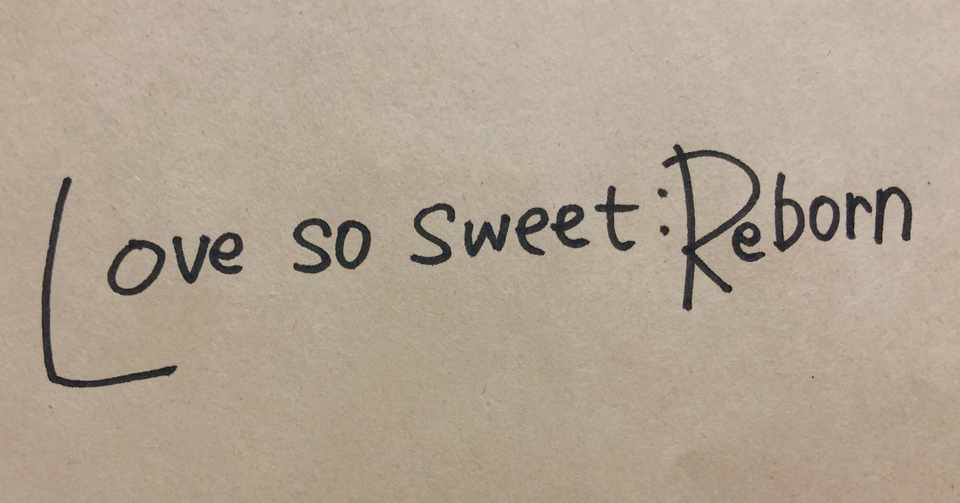 Love so sweet : Reborn